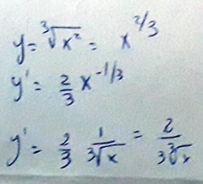 y = ∛x² = x^2/3
y' = 2/3 x^-1/3
y' = 2/3 1/∛x = 2/3∛x